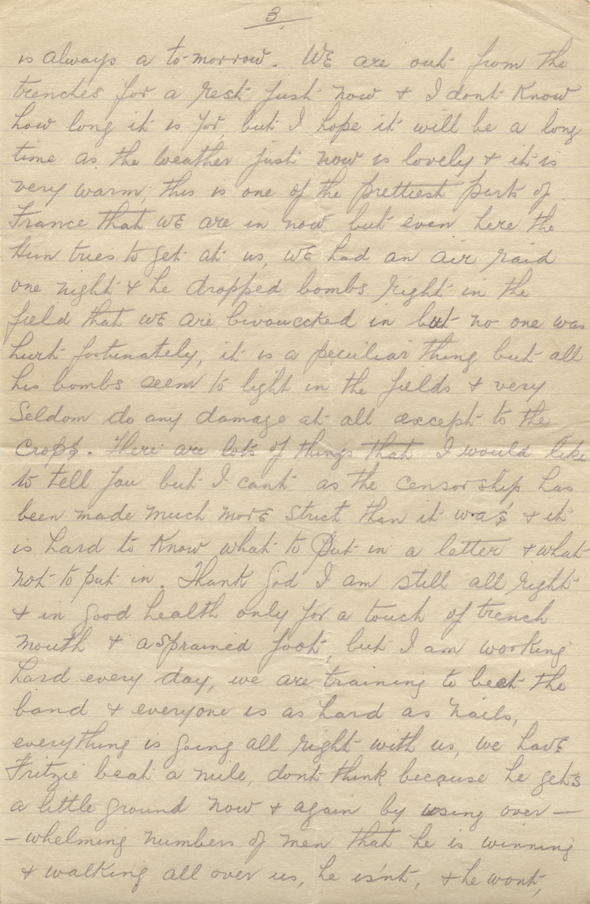 3.
is always a to-morrow. WE are out from the
trenches for a rest just now & I dont Know
how long it is for, but I hope it will be a long
time as the weather just now is lovely & it is
very warm, this is one of the prettiest parts of
France that WE are in now but even here the
Hun tries to get at us, WE had an air raid
one night & he dropped bombs right in the
field that WE are bivouccked in but no one was
hurt fortunately, it is a peculiar thing but all
his bombs seem to light in the fields & very
Seldom do any damage at all except to the
crops. There are lots of things that I would like
to tell you but I cant as the censorship has
been made much morE strict than it was & it
is hard to Know what to Put in a letter & what
not to put in. Thank God I am still all right
& in good health only for a touch of trench
mouth & a sprained foot, but I am working
hard every day, we are training to beat the
band & everyone is as hard as nails,
everything is going all right with us, we havE
Fritzie beat a mile, dont think because he gets
a little ground now & again by using over-
-whelming numbers of men that he is winning
& walking all over us, he is'nt, & he wont,